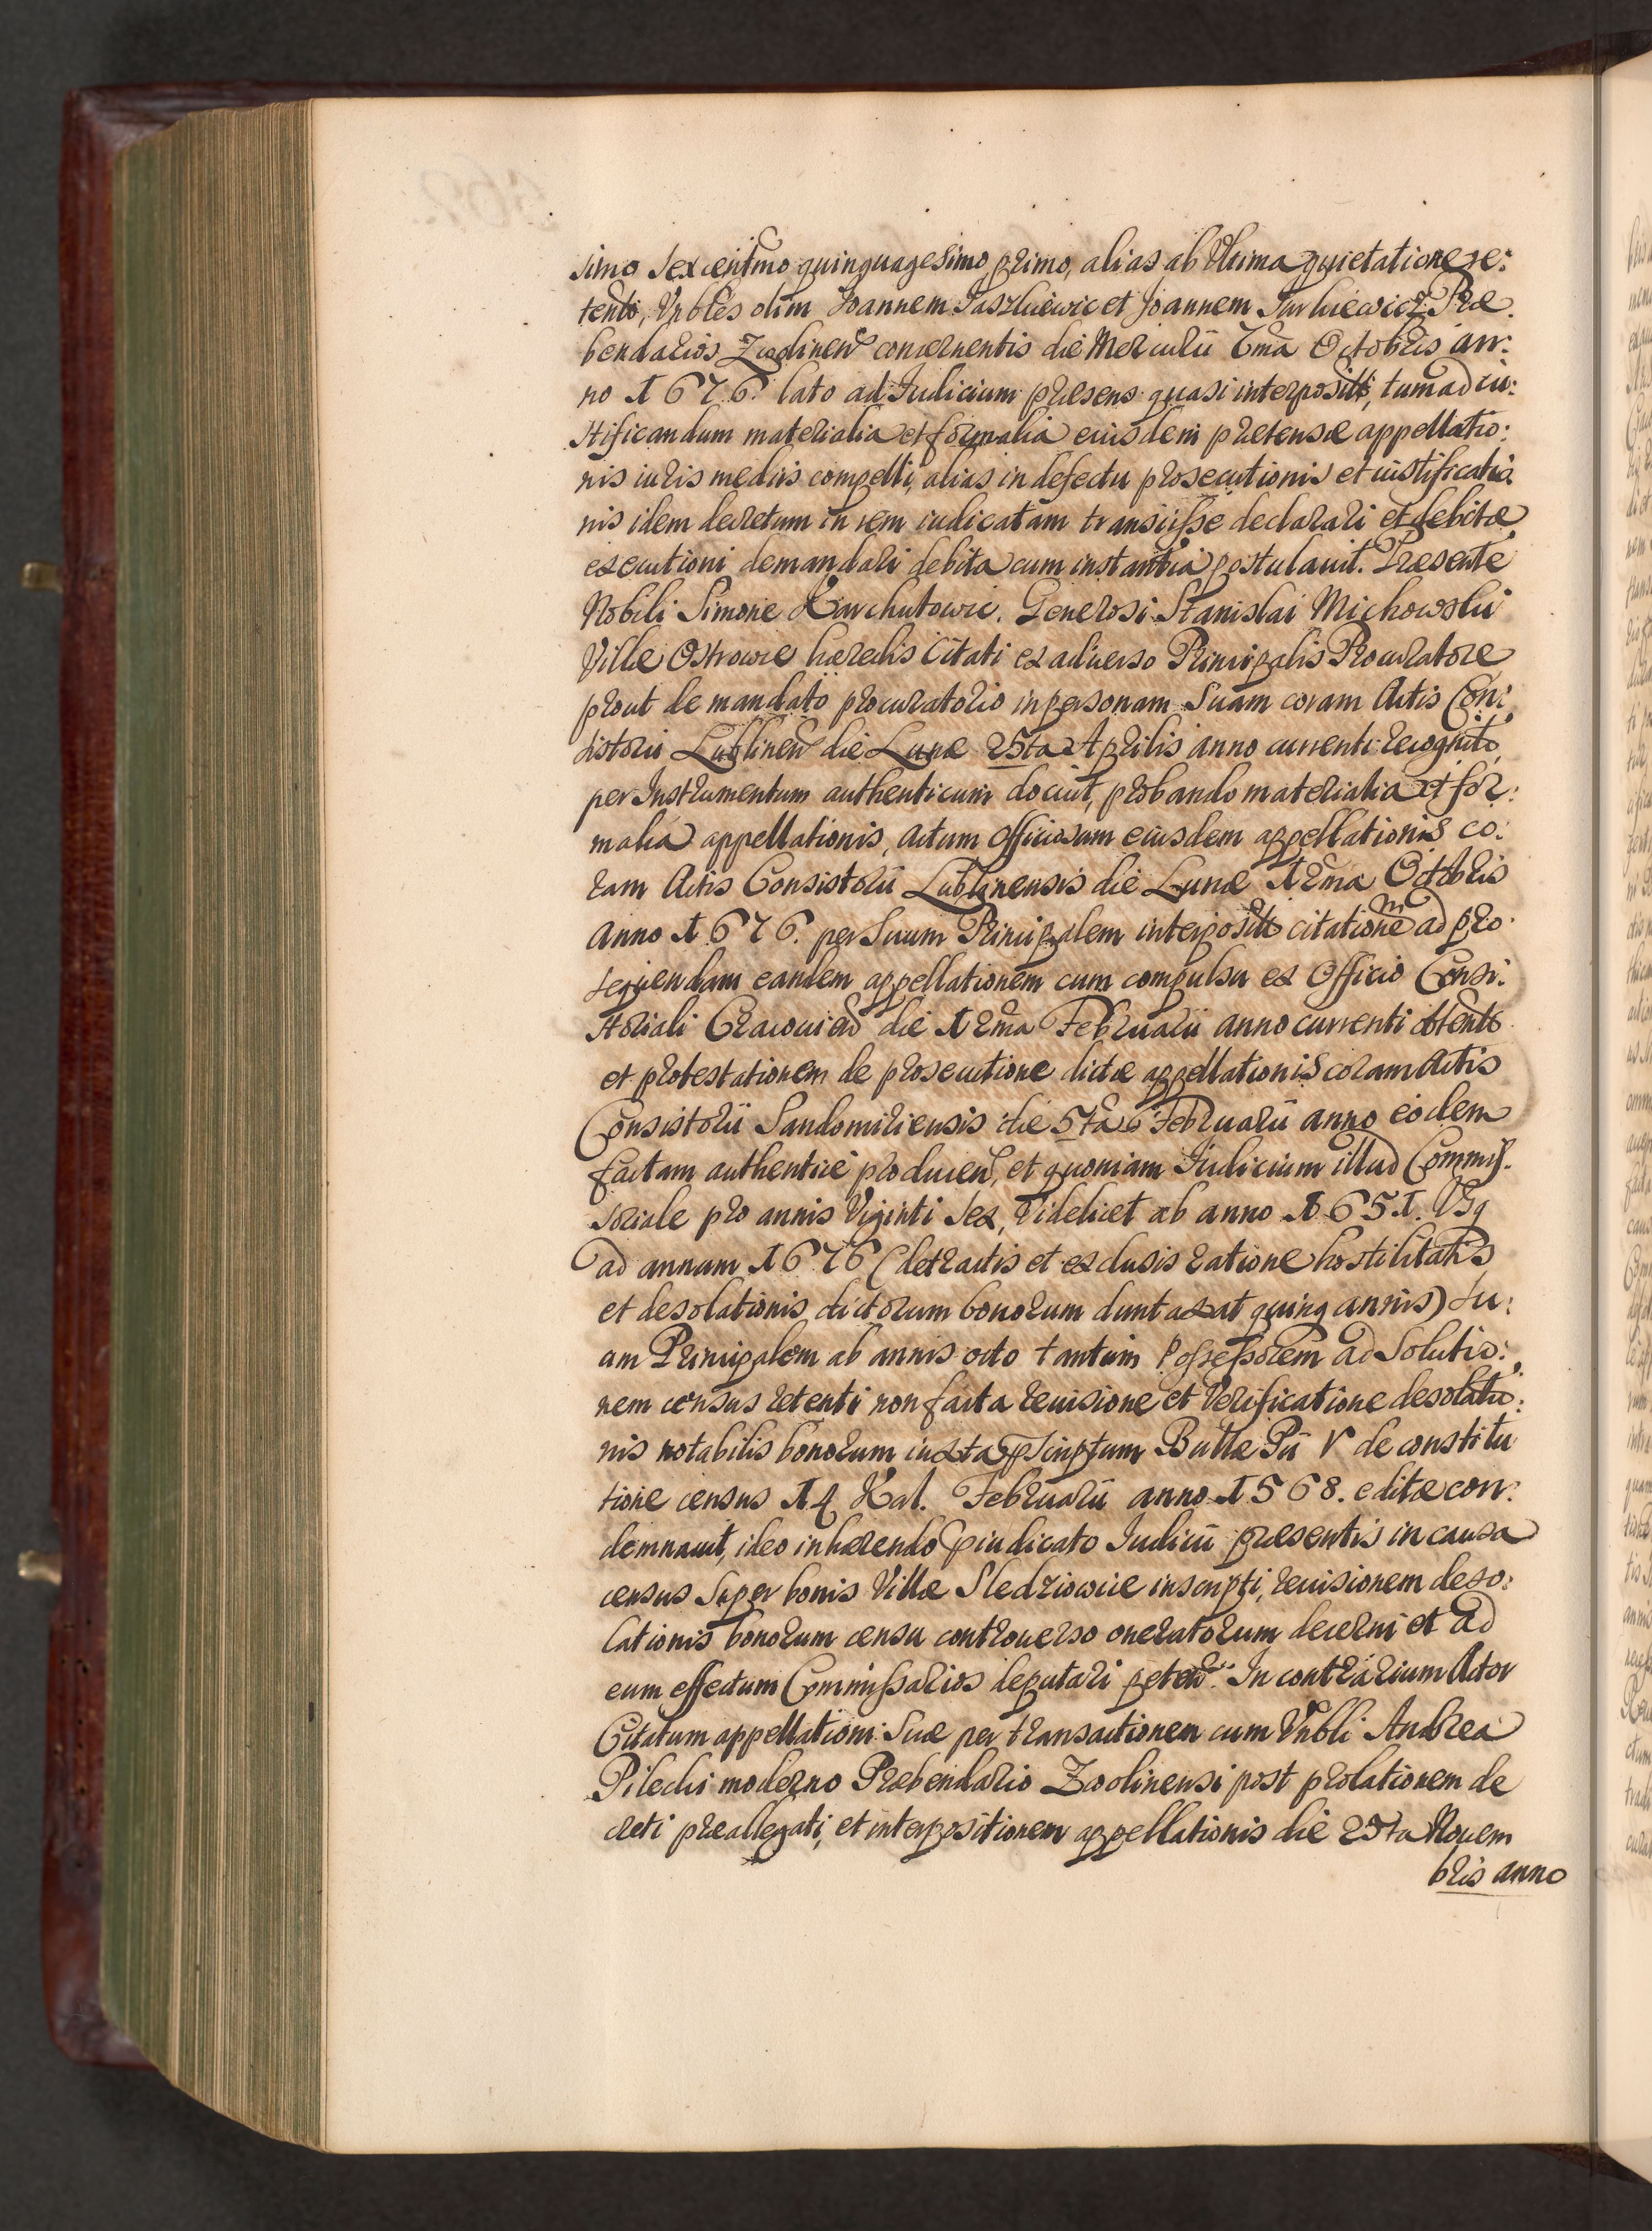 simo sexcentmo quinquagesimo primo, alias ab Vltima quietatione re:
tento, Vnbles olim Joannem Jaszkiewic et Joannem Jarkiewicz Præ
bendarios Zwolinen concernentis die Mercurii 7ma Octobris an:
no 1676. lato ad Iudicium præsens quasi interpositt, tum ad iu:
stificandum materialia et formalia eiusdem prætensæ appellatio:
nis iuris mediis compelli, alias in defectu prosecutionis et iustificatio
nis idem decretum in rem iudicatam transiisse declarari et debitæ
executioni demandari debita cum instantia postulauit. Præsente
Nobili Simone Karchutowic. Generosi Stanislai Michowski
Villæ Ostrowie hæredis Citati ex aduerso Principalis Procuratore
prout de mandato procuratorio in personam Suam coram Actis Con:
sistorii Lublinen die Lunæ 25ta Aprilis anno currenti recognito
per Instrumentum authenticum docuit, probando materialia et for:
malia appellationis, Actum Officiosum eiusdem appellationis co:
ram Actis Consistorii Lublinensis die Lunæ 12ma Octobris
Anno 1676. per Suum Principalem interpositt citationem ad pro
sequendam eandem appellationem cum compulsu ex Officio Consi:
storiali Cracouien die 12ma Februarii anno currenti obtento
et protestationem de prosecutione dictæ appellationis coram Actis
Consistorii Sandomiriensis die 5ta Februarii anno eodem
factam authentice producen, et quoniam Iudicium illud Commis
soriale pro annis Viginti sex, Videlicet ab anno 1651. Vsq
ad annum 1676 (detractis et exclusis ratione hostilitatis
et desolationis dictorum bonorum duntaxat quinq annis) su:
am Principalem ab annis octo tantum Possessorem ad Solutio:
nem census retenti non facta reuisione et Verificatione desolatio:
nis notabilis bonorum iuxta Præscriptum Bullæ Pii V de constitu
tione census 14 Kal. Februarii anno 1568. editæ con:
demnauit, ideo inhærendo Præiudicato Iudicii præsentis in causa
census Super bonis Villæ Sledziowice inscripti, reuisionem deso:
lationis bonorum censu controuerso oneratorum decerni et ad
eum effectum Commissarios deputari peten. In contrarium Actor
Citatum appellationi Suæ per transactionem cum Vnbli Andrea
Pilecki moderno Præbendario Zwolinensi post prolationem de
creti præallegati, et interpositionem appellationis die 25ta Nouem
bris anno